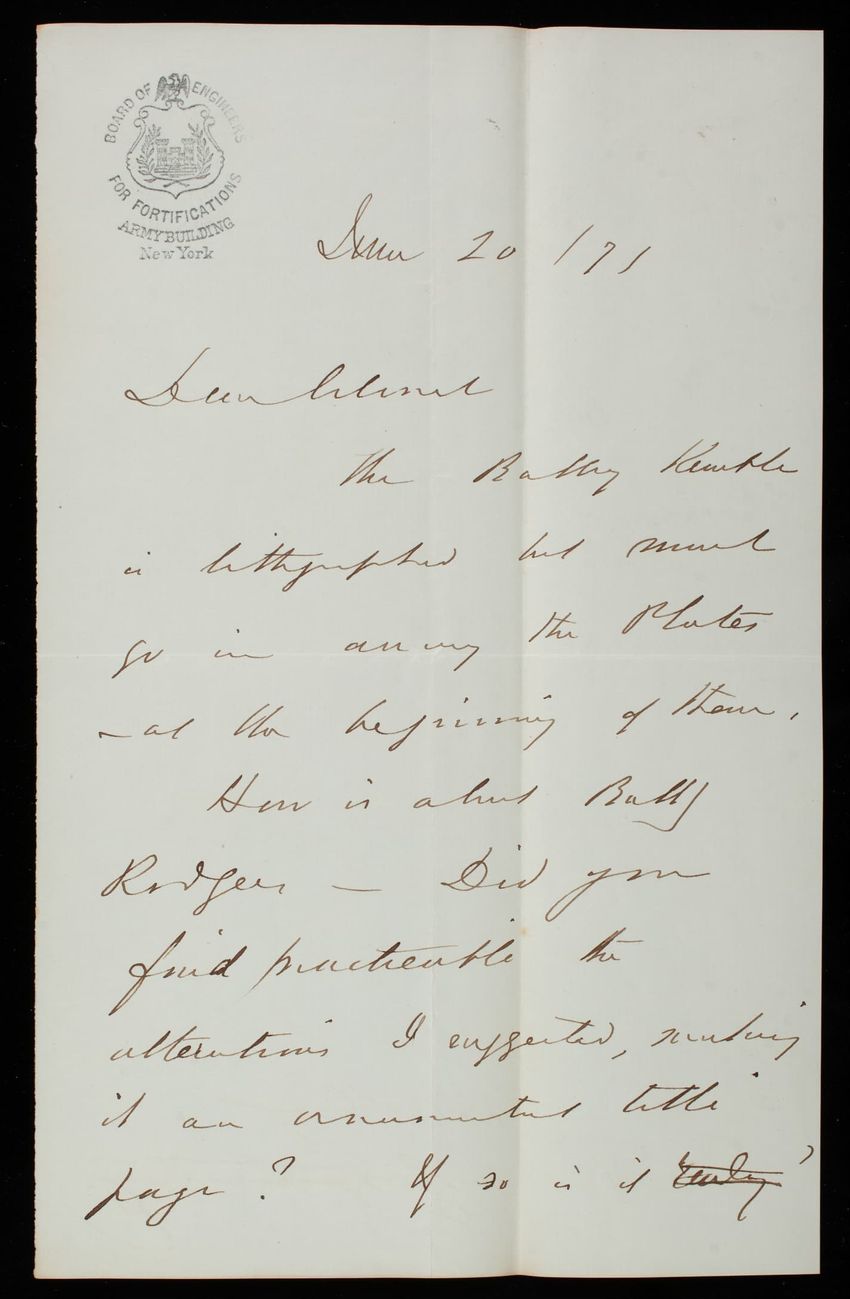 BOARD OF ENGINEERS
FOR FORTIFICATIONS
ARMY BUILDING
New York
June 20 / 71
Dear Colonel
The Battery Kemble
is lithographed but must
go in among the Plates
- at the beginning of them.
How is about Batty
Rodgers — Did you
find practicable the
alterations I suggested, making
it an ornamental title
page? If so is it